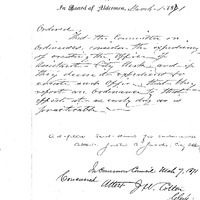 In Board of Aldermen, March 1. 1871
Ordered
That the Committee on
Ordinances, consider the expediency
of creating the Office of
Assistant City Clerk and if
they deem it expedient to
such Office, that they
report an Ordinance to that
effect at as early day as is
practicable.
In Common Council Mch 7, 1871
Concurred Attest J. W. Cotton
Clerk